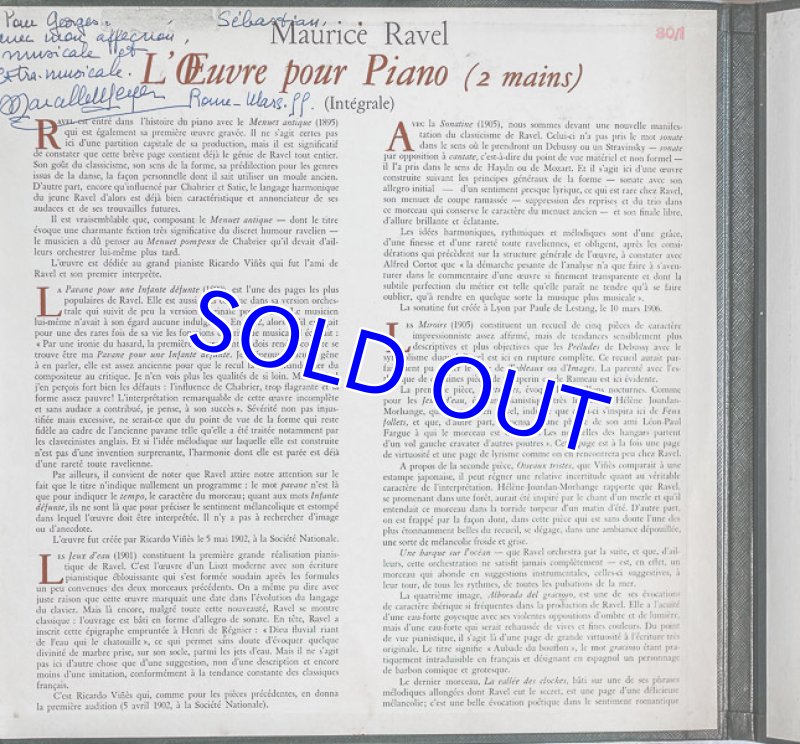 Pour Georges, Sébastian,
avec mon affection,
musicale et
extra-musicale.
Marcelle Meyer Rome-Mars. 55.
80/1
Maurice Ravel
L'Œuvre pour Piano (2 mains)
(Intégrale)
RAVEL est entré dans l'histoire du piano avec le Menuet antique (1895)
qui est également sa première œuvre gravée. Il ne s'agit certes pas
ici d'une partition capitale de sa production, mais il est significatif
de constater que cette brève page contient déjà le génie de Ravel tout entier.
Son goût du classicisme, son sens de la forme, sa prédilection pour les genres
issus de la danse, la façon personnelle dont il sait utiliser un moule ancien.
D'autre part, encore qu'influencé par Chabrier et Satie, le langage harmonique
du jeune Ravel d'alors est déjà bien caractéristique et annonciateur de ses
audaces et de ses trouvailles futures.
Il est vraisemblable que, composant le Menuet antique — dont le titre
évoque une charmante fiction très significative du discret humour ravelien —
le musicien a dû penser au Menuet pompeux de Chabrier qu'il devait d'ail-
leurs orchestrer lui-même plus tard.
L'œuvre est dédiée au grand pianiste Ricardo Viñès qui fut l'ami de
Ravel et son premier interprète.
LA Pavane pour une Infante défunte est l'une des pages les plus
populaires de Ravel. Elle est aussi dans sa version orches-
trale qui suivit de peu la version pour le musicien
lui-même n'avait à son égard aucune alors
pour une des rares fois de sa vie les fonctions musical :
« Par une ironie du hasard, la première dois rendre
trouve être ma Pavane pour une Infante défunte. gêne
à en parler, elle est assez ancienne pour que le recul la du
compositeur au critique. Je n'en vois plus les qualités de si loin.
j'en perçois fort bien les défauts : l'influence de Chabrier, trop flagrante et la
forme assez pauvre! L'interprétation remarquable de cette œuvre incomplète
et sans audace a contribué, je pense, à son succès ». Sévérité non pas injus-
tifiée mais excessive, ne serait-ce que du point de vue de la forme qui reste
fidèle au cadre de l'ancienne pavane telle qu'elle a été traitée notamment par
les clavecinistes anglais. Et si l'idée mélodique sur laquelle elle est construite
n'est pas d'une invention surprenante, l'harmonie dont elle est parée est déjà
d'une rareté toute ravelienne.
Par ailleurs, il convient de noter que Ravel attire notre attention sur le
fait que le titre n'indique nullement un programme : le mot pavane n'est là
que pour indiquer le tempo, le caractère du morceau; quant aux mots Infante
défunte, ils ne sont là que pour préciser le sentiment mélancolique et estompé
dans lequel l'œuvre doit être interprétée. Il n'y a pas à rechercher d'image
ou d'anecdote.
L'œuvre fut créée par Ricardo Viñès le 5 mai 1902, à la Société Nationale.
LES Jeux d'eau (1901) constituent la première grande réalisation pianis-
tique de Ravel. C'est l'œuvre d'un Liszt moderne avec son écriture
pianistique éblouissante qui s'est formée soudain après les formules
un peu convenues des deux morceaux précédents. On a même pu dire avec
juste raison que cette œuvre marquait une date dans l'évolution du langage
du clavier. Mais là encore, malgré toute cette nouveauté, Ravel se montre
classique : l'ouvrage est bâti en forme d'allegro de sonate. En tête, Ravel a
inscrit cette épigraphe empruntée à Henri de Régnier : « Dieu fluvial riant
de l'eau qui le chatouille », ce qui permet sans doute d'évoquer quelque
divinité de marbre prise, sur son socle, parmi les jets d'eau. Mais il ne s'agit
pas ici d'autre chose que d'une suggestion, non d'une description et encore
moins d'une imitation, conformément à la tendance constante des classiques
français.
C'est Ricardo Viñès qui, comme pour les pièces précédentes, en donna
la première audition (5 avril 1902, à la Société Nationale).
AVEC la Sonatine (1905), nous sommes devant une nouvelle manifes-
tation du classicisme de Ravel. Celui-ci n'a pas pris le mot sonate
dans le sens où le prendront un Debussy ou un Stravinsky — sonate
par opposition à cantate, c'est-à-dire du point de vue matériel et non formel —
il l'a pris dans le sens de Haydn ou de Mozart. Et il s'agit ici d'une œuvre
construite suivant les principes généraux de la forme — sonate avec son
allegro initial — d'un sentiment presque lyrique, ce qui est rare chez Ravel,
son menuet de coupe ramassée — suppression des reprises et du trio dans
ce morceau qui conserve le caractère du menuet ancien — et son finale libre,
d'allure brillante et éclatante.
Les idées harmoniques, rythmiques et mélodiques sont d'une grâce,
d'une finesse et d'une rareté toute raveliennes, et obligent, après les consi-
dérations qui précèdent sur la structure générale de l'œuvre, à constater avec
Alfred Cortot que « la démarche pesante de l'analyse n'a que faire à s'aven-
turer dans le commentaire d'une œuvre si finement transparente et dont la
subtile perfection du métier est telle qu'elle paraît ne tendre qu'à se faire
oublier, qu'à rendre en quelque sorte la musique plus musicale ».
La sonatine fut créée à Lyon par Paule de Lestang, le 10 mars 1906.
LES Miroirs (1905) constituent un recueil de cinq pièces de caractère
impressionniste assez affirmé, mais de tendances sensiblement plus
descriptives et plus objectives que les Préludes de Debussy avec le
symbolisme duquel est ici en rupture complète. Ce recueil aurait par-
faitement pu de ou d'Images. La parenté avec l'es-
que de certaines pièces de Couperin ou de Rameau est ici évidente.
La première pièce, évoque nocturnes. Comme
pour les Jeux d'eau, Hélène Jourdan-
Morhange, indique que s'inspira ici de Feux
follets, et que, d'autre part, de son ami Léon-Paul
Fargue à qui le morceau est des hangars partent
d'un vol gauche cravater d'autres poutres ». page est à la fois une page
de virtuosité et une page de lyrisme comme on en rencontrera peu chez Ravel.
A propos de la seconde pièce, Oiseaux tristes, que Viñès comparait à une
estampe japonaise, il peut régner une relative incertitude quant au véritable
caractère de l'interprétation. Hélène Jourdan-Morhange rapporte que Ravel,
se promenant dans une forêt, aurait été inspiré par le chant d'un merle et qu'il
entendait ce morceau dans la torride torpeur d'un matin d'été. D'autre part,
on est frappé par la façon dont, dans cette pièce qui est sans doute l'une des
plus étonnamment belles du recueil, se dégage, dans une ambiance dépouillée,
une sorte de mélancolie froide et grise.
Une barque sur l'océan — que Ravel orchestra par la suite, et que, d'ail-
leurs, cette orchestration ne satisfit jamais complètement — est, en effet, un
morceau qui abonde en suggestions instrumentales, celles-ci suggestives, à
leur tour, de tous les rythmes, de toutes les pulsations de la mer.
La quatrième image, Alborada del gracioso, est une de ses évocations
de caractère ibérique si fréquentes dans la production de Ravel. Elle a l'acuité
d'une eau-forte goyesque avec ses violentes oppositions d'ombre et de lumière,
mais d'une eau-forte qui serait rehaussée de vives et fines couleurs. Du point
de vue pianistique, il s'agit là d'une page de grande virtuosité à l'écriture très
originale. Le titre signifie « Aubade du bouffon », le mot gracioso étant pra-
tiquement intraduisible en français et désignant en espagnol un personnage
de barbon comique et grotesque.
Le dernier morceau, La vallée des cloches, bâti sur une de ses phrases
mélodiques allongées dont Ravel eut le secret, est une page d'une délicieuse
mélancolie; c'est une belle évocation poétique dans le sentiment romantique
SOLD OUT